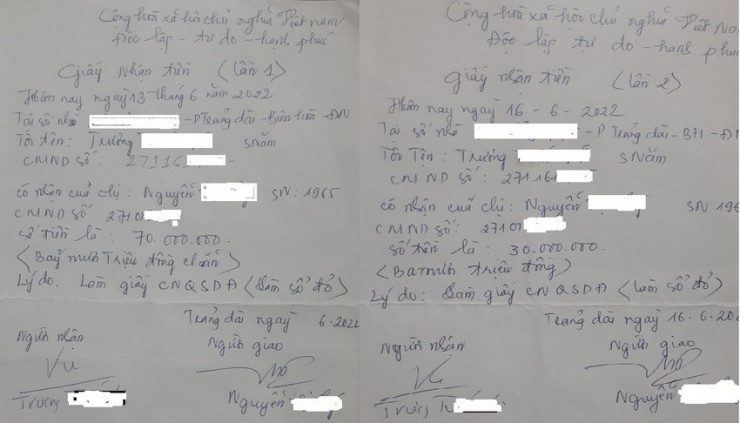 Cộng hòa xã hội chủ nghĩa Việt Nam
Độc lập - tự do - hạnh phúc
Giấy nhận tiền (lần 1)
Hôm nay ngày 13 tháng 6 năm 2022
Tại số nhà - P Trảng dài - Biên hòa - ĐN
Tôi tên: Trương sn năm
CMND số: 27116
có nhận của chị: Nguyễn SN: 1965
CMND số 2710
số tiền là: 70.000.000.
(Bảy mươi triệu đồng chẵn)
Lý do: Làm giấy CNQSDĐ (Làm sổ đỏ)
Trảng dài ngày 6.2022
Người nhận Người giao
Trương Nguyễn
Cộng hòa xã hội chủ nghĩa Việt Na
Độc lập tự do - hạnh phúc
Giấy nhận tiền (lần 2)
Hôm nay ngày 16 - 6 - 2022
Tại số nhà - P Trảng dài - BH - Đ
Tôi Tên: Trương SNăm
CMND số: 271161
có nhận của chị: Nguyễn SN 196
CMND số: 27101
số tiền là: 30.000.000.
(Ba mươi triệu đồng)
Lý do: Làm giấy CNQSDĐ (làm sổ đỏ)
Trảng dài ngày 16.6.202
Người nhận Người giao
Trương Nguyễn